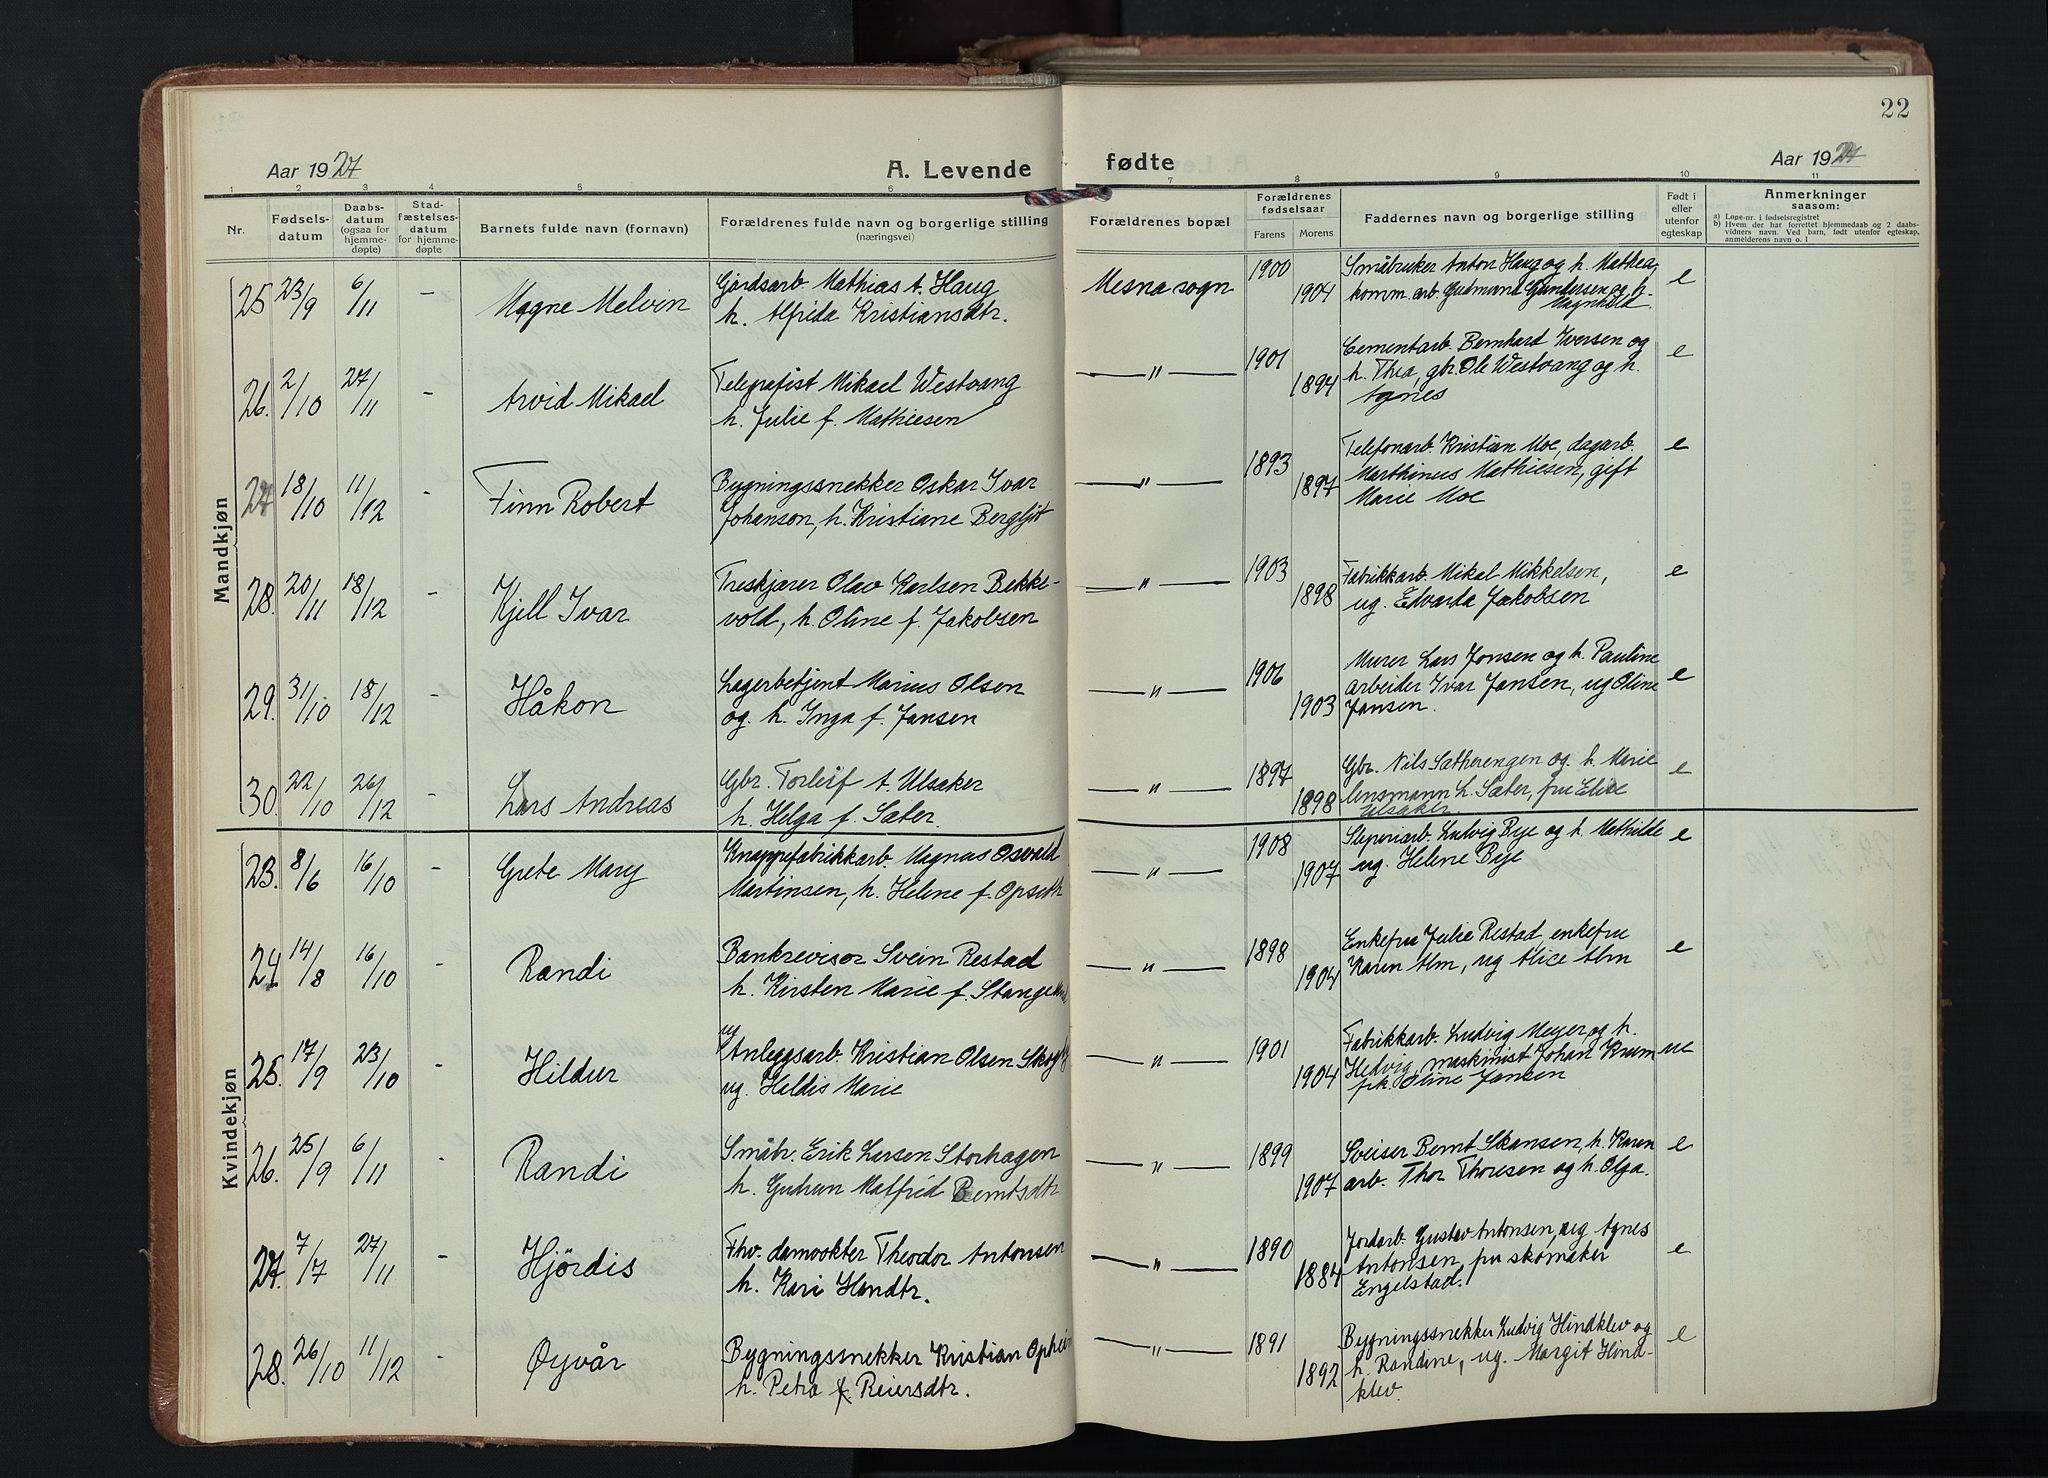 22
Aar 1927
A. Levende
fødte
Aar 1927
1 2 3 4 5 6 7 8 9 10 11
Nr.
Fødsels-
datum
Daabs-
datum
(ogsaa for
hjemme-
døpte)
Stad-
fæstelses-
datum
for hjemme-
døpte
Barnets fulde navn (fornavn)
Forældrenes fulde navn og borgerlige stilling
(næringsvei)
Forældrenes bopæl
Forældrenes
fødselsaar
Farens Morens
Faddernes navn og borgerlige stilling
Født i
eller
utenfor
egteskap
Anmerkninger
saasom:
a) Løpe-nr. i fødselsregistret
b) Hvem der har forrettet hjemmedaab og 2 daabs-
vidners navn. Ved barn, født utenfor egteskap,
anmelderens navn o. l
Mandkjøn
25 23/9 6/11 - Magne Melvin
Gårdsarb. Mathias A. Haug
h. Alfrida Kristiansdtr.
Mesna sogn 1900 1904
Småbruker Anton Haug og h. Mathea,
komm. arb. Gudmund Gundersen og h.
Magnhild
e
26. 2/10 27/11 - Arvid Mikael
Telegrafist Mikael Westvang
h. Julie f. Mathiesen
— " — 1901 1894
Cementarb. Bernhard Iversen og
h. Thea, gbr. Ole Westvang og h.
Agnes
e
27 18/10 11/12 - Finn Robert
Bygningssnekker Oskar Ivar
Johanson, h. Kristiane Bergljot
— " — 1893 1897
Telefonarb. Kristian Moe, dagarb.
Marthinus Mathiesen, gift
Marie Moe
e
28. 20/11 18/12 - Kjell Ivar
Treskjærer Olav Karlsen Bekke-
vold, h. Oline f. Jakobsen
— " — 1903 1898
Fabrikkarb. Mikal Mikkelsen,
ug. Edvarda Jakobsen
e
29. 31/10 18/12 - Håkon
Lagerbetjent Marius Olsen
og. h. Inga f. Jansen
— " — 1906 1903
Murer Lars Jonsen og h. Pauline
arbeider Ivar Jansen, ug Oline
Jansen.
e
30. 22/10 26/12 - Lars Andreas
Gbr. Torleif A. Ulsaker
h. Helga f. Sæter.
— " — 1897 1898
Gbr. Nils Sætherengen og. h. Marie
lensmann L. Sæter, fru Elise
Ulsaker
e
Kvindekjøn
23. 8/6 16/10 - Grete Mary
Knappefabrikkarb. Magnus Osvald
Martinsen, h. Helene f. Opseth
— " — 1908 1907
Ludvig Bye og h. Mathilde
ug. Helene Bye
e
24 14/8 16/10 - Randi
Bankrevisor Svein Restad
h. Kirsten Marie f.
— " — 1898 1904
Enkefru Julie Restad, enkefru
Karen Alm, ug Alice Alm
e
25. 17/9 23/10 - Hildur
ug
Anleggsarb. Kristian Olsen
ug. Heldis Marie
— " — 1901 1904
Fabrikkarb. Ludvig Meyer og h.
Hedvig, maskinist Johan Krum
frk. Oline Jansen
ue
26. 25/9 6/11 - Randi
Småbr. Erik Larsen Storhagen
h. Gudrun Malfrid Berntsdtr
— " — 1899 1907
Sveiser Bernt Skansen, h. Karen
arb. Thor Thoresen og h. Olga.
e
27. 7/7 27/11 - Hjørdis
Fhv. damvokter Theodor Antonsen
h. Kari Hansdtr.
— " — 1890 1884
Jordarb. Gustav Antonsen, ug Agnes
Antonsen, fru skomaker
Engelstad.
e
28. 26/10 11/12 - Øyvår
Bygningssnekker Kristian Opheim
h. Petra f. Reiersdtr.
— " — 1891 1892
Bygningssnekker Ludvig Hindklev og
h. Randine, ug. Margit Hind-
klev.
e